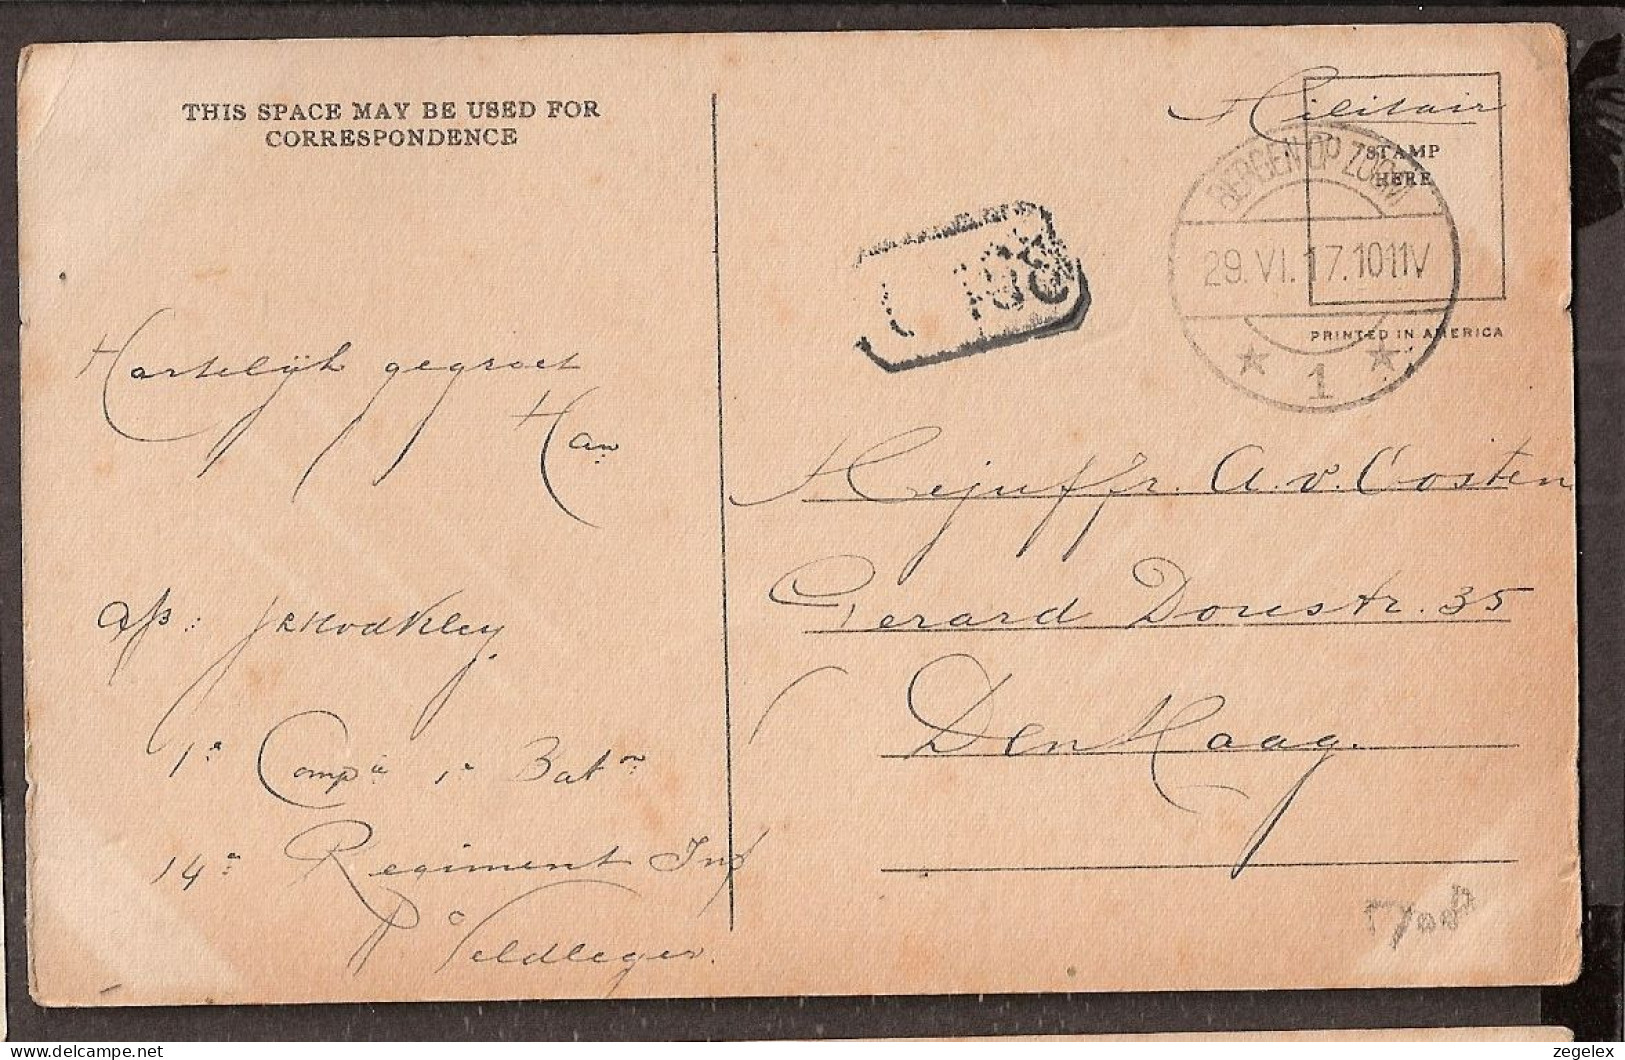 THIS SPACE MAY BE USED FOR
CORRESPONDENCE
Hartelijk gegroet
Han
afz:
1e Compie 1e Baton
14e Regiment Inf
Veldleger.
Militair
STAMP
HERE
BERGEN OP ZOOM
29.VI.17.1011V
1
PRINTED IN AMERICA
Mejuffr. A.v. Oosten
Gerard Doustr. 35
Den Haag.
zegelex